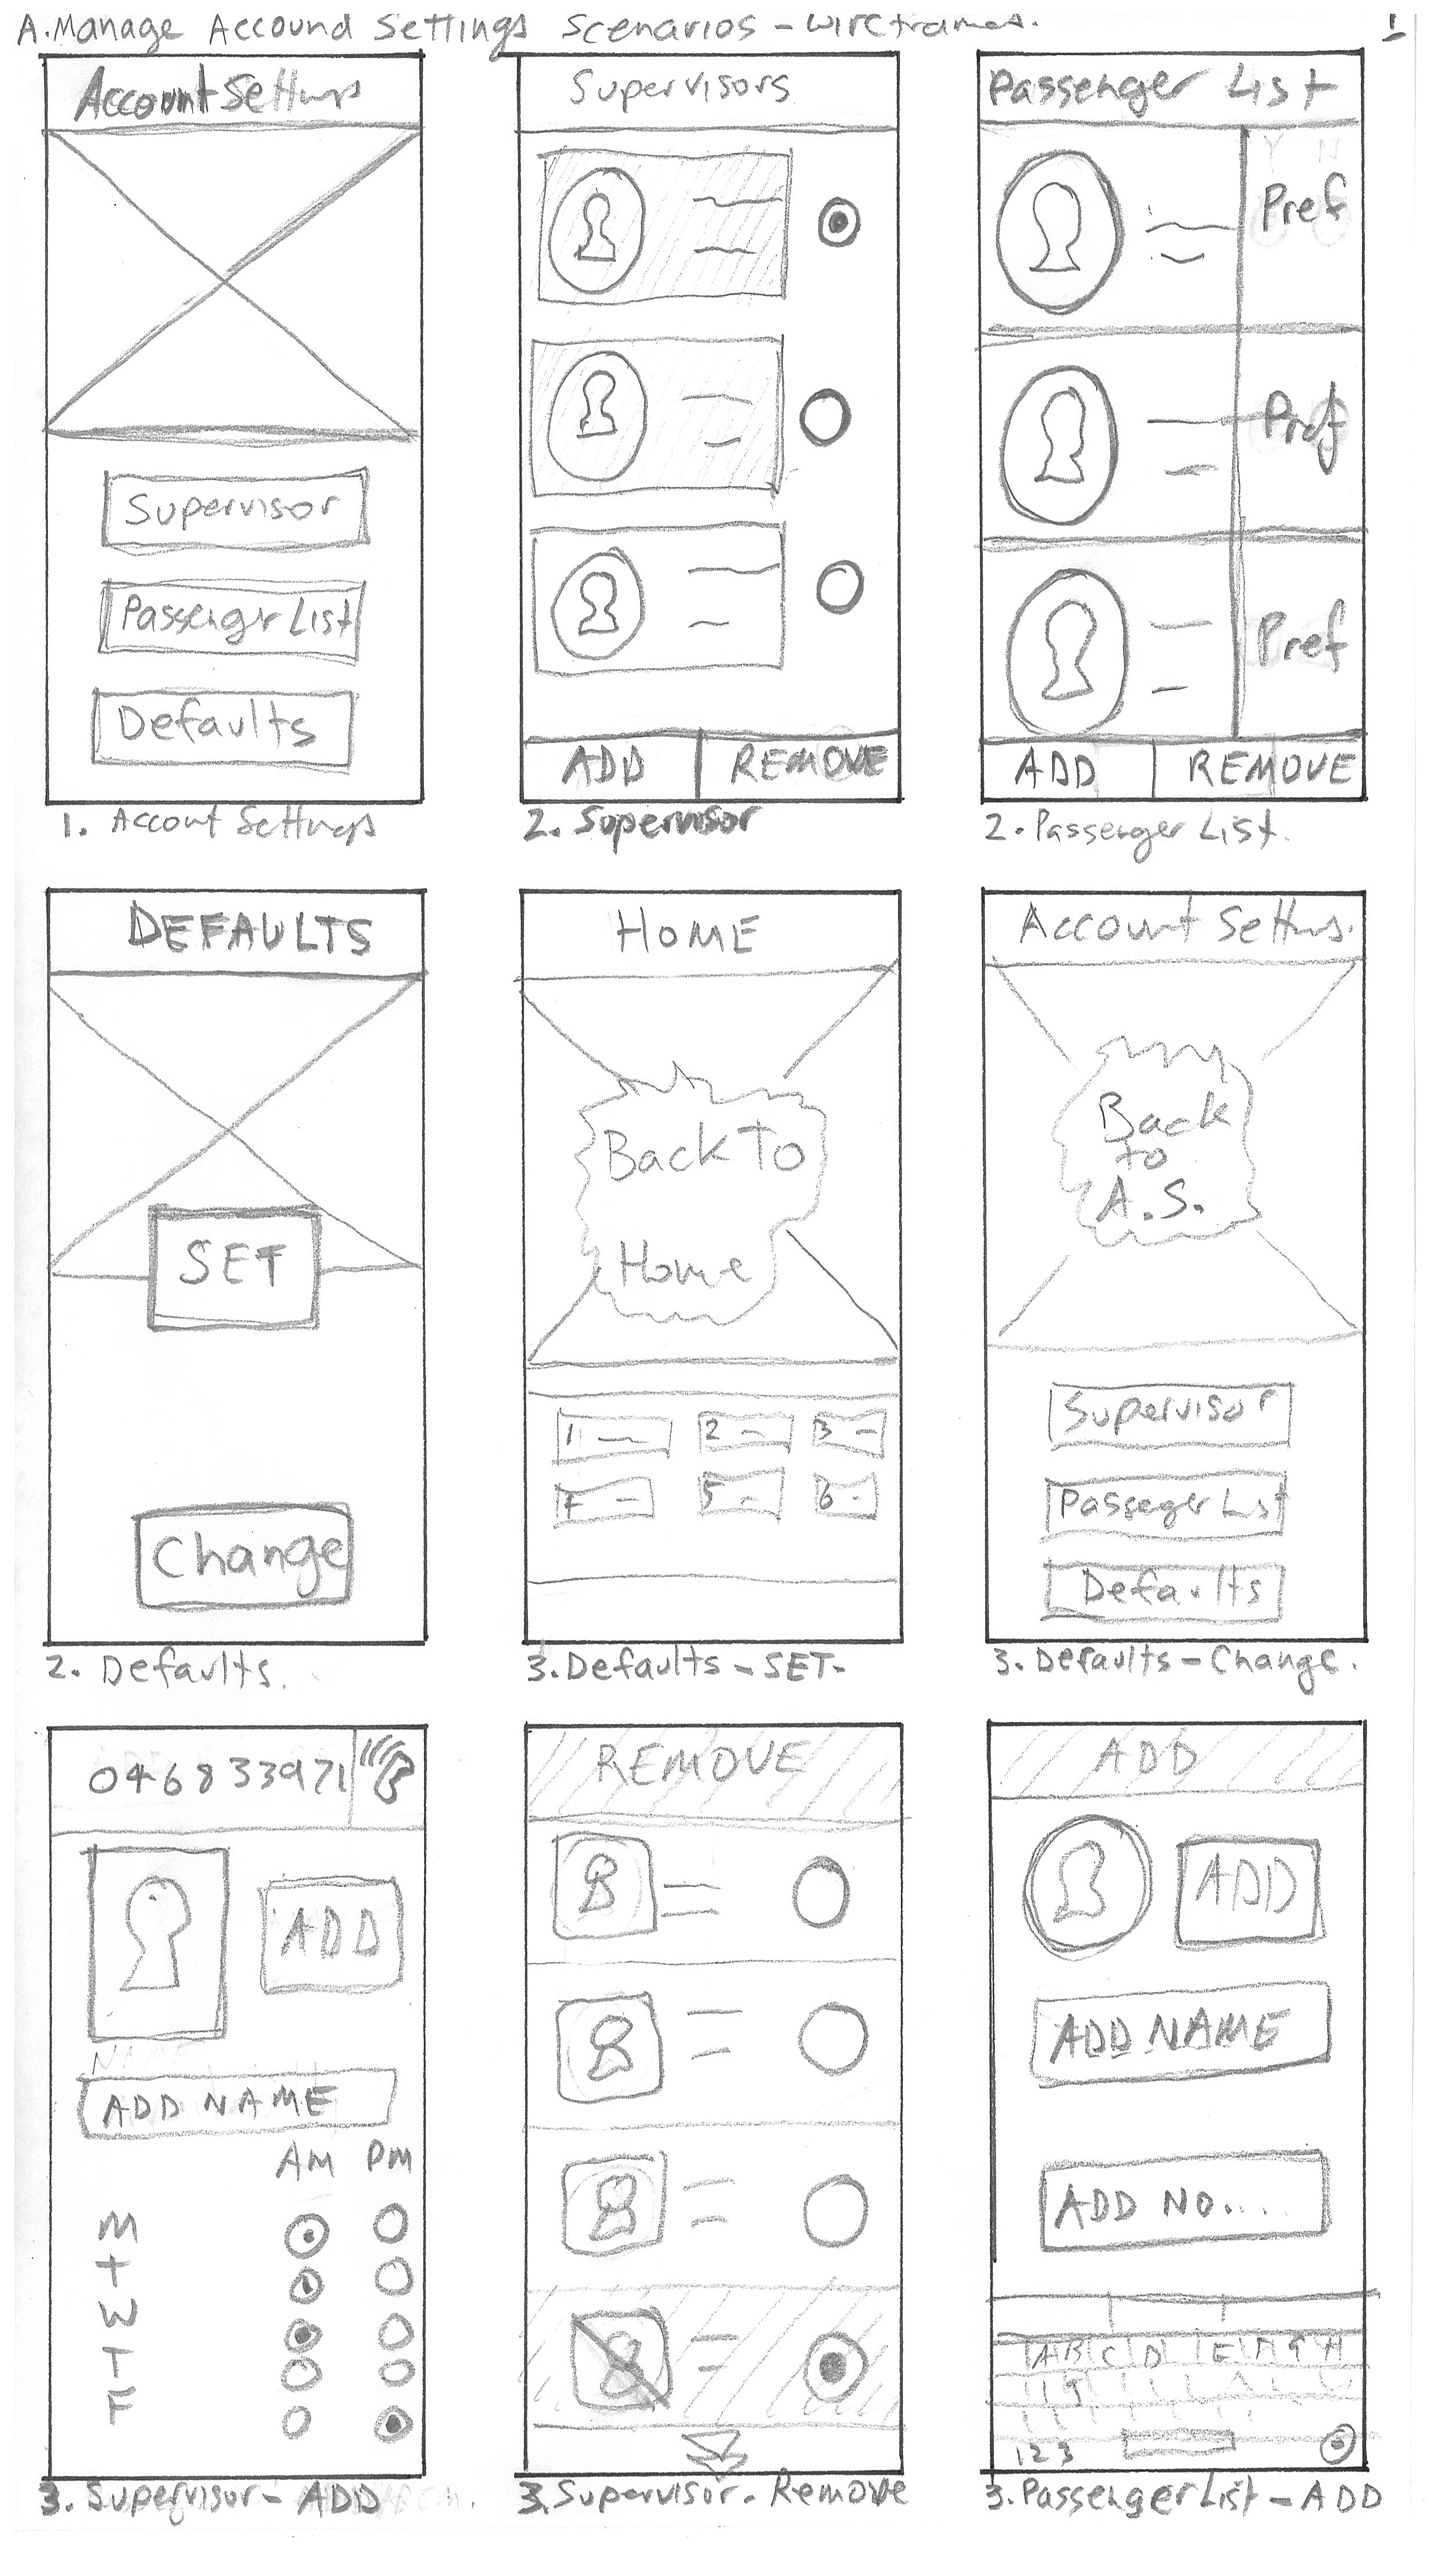 A. Manage Accound Settings Scenarios - Wireframes.
1
Account Settings
Supervisor
Passenger List
Defaults
1. Accont Settings
Supervisors
ADD
REMOVE
2. Supervisor
Passenger List
Pref
Pref
Pref
ADD
REMOVE
2. Passenger List.
DEFAULTS
SET
Change
2. Defaults.
HOME
Back To
Home
1
2
3
4
5
6
3. Defaults - SET -
Account Settings.
Back
to
A.S.
Supervisor
Passeger List
Defaults
3. Defaults - Change.
0468 33971
ADD
NAME
ADD NAME
Am Pm
M
T
W
T
F
3. Supervisor - ADD
REMOVE
3. Supervisor - Remove
ADD
ADD
ADD NAME
ADD NO....
A B C D E F G H
123
3. Passenger List - ADD